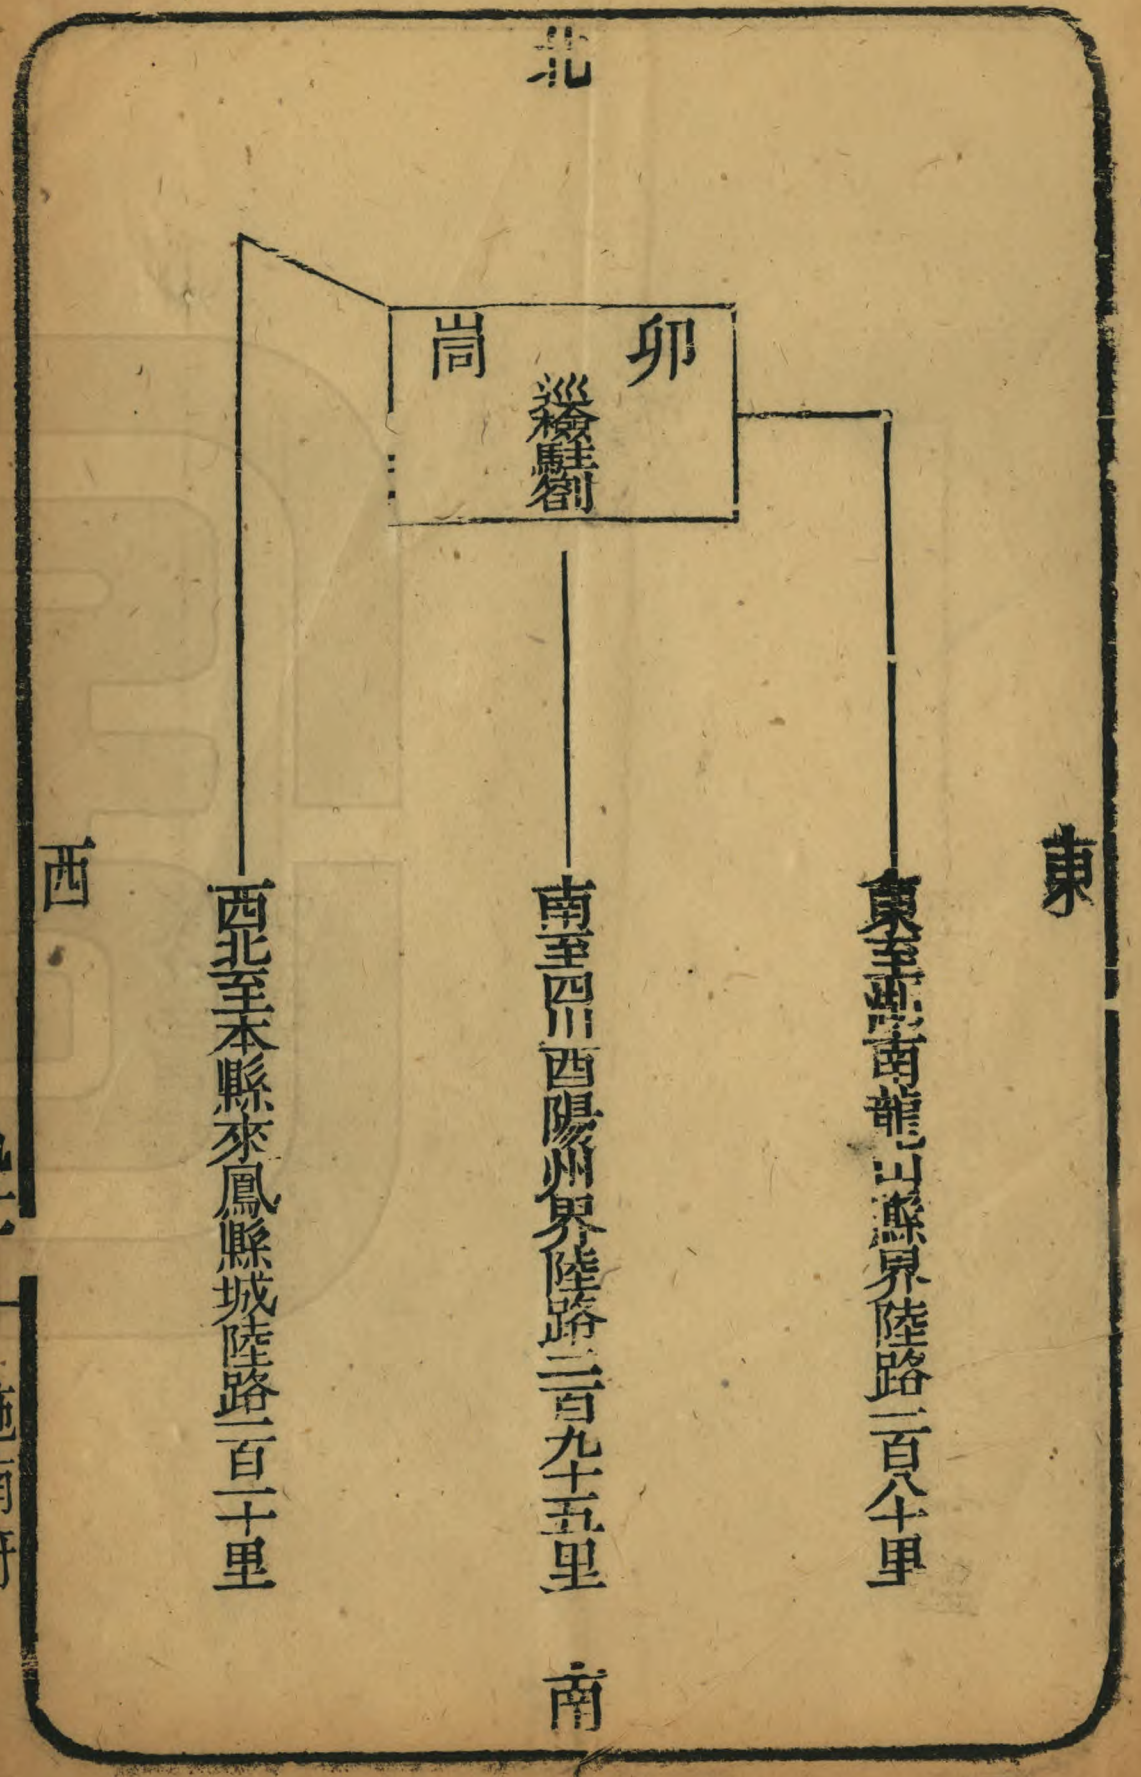 北
東
卯峝
巡檢駐劄
東至湖南龍山縣界陸路一百八十里
南至四川酉陽州界陸路二百九十五里
西北至本縣來鳳縣城陸路一百二十里
西
南
施南府